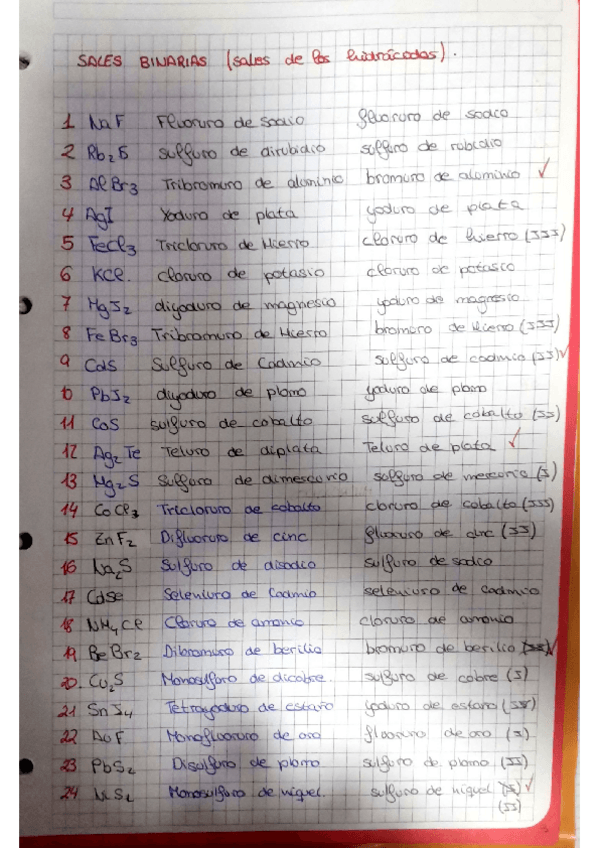 SALES BINARIAS (sales de los hidrácidos).
1 NaF Fluoruro de sodio fluoruro de sodio
2 Rb2S sulfuro de dirubidio sulfuro de rubidio
3 AlBr3 Tribromuro de aluminio bromuro de aluminio ✓
4 AgI Yoduro de plata yoduro de plata
5 FeCl3 Tricloruro de Hierro cloruro de hierro (III)
6 KCl. cloruro de potasio cloruro de potasio
7 MgI2 diyoduro de magnesio yoduro de magnesio
8 FeBr3 Tribromuro de Hierro bromuro de Hierro (III)
9 CdS Sulfuro de Cadmio sulfuro de cadmio (II) ✓
10 PbI2 diyoduro de plomo yoduro de plomo
11 CoS sulfuro de cobalto sulfuro de cobalto (II)
12 Ag2Te Teluro de diplata Teluro de plata ✓
13 Hg2S Sulfuro de dimercurio sulfuro de mercurio (I)
14 CoCl3 Tricloruro de cobalto cloruro de cobalto (III)
15 ZnF2 Difluoruro de cinc fluoruro de cinc (II)
16 Na2S Sulfuro de disodio sulfuro de sodio
17 CdSe Seleniuro de Cadmio seleniuro de cadmio
18 NH4Cl Cloruro de amonio cloruro de amonio
19 BeBr2 Dibromuro de berilio bromuro de berilio ✓
20. Cu2S Monosulfuro de dicobre. sulfuro de cobre (I)
21 SnI4 Tetrayoduro de estaño yoduro de estaño
22 AuF Monofluoruro de oro fluoruro de oro (I)
23 PbS2 Disulfuro de plomo sulfuro de plomo (II)
24 Monosulfuro de níquel. sulfuro de níquel ✓
(II)